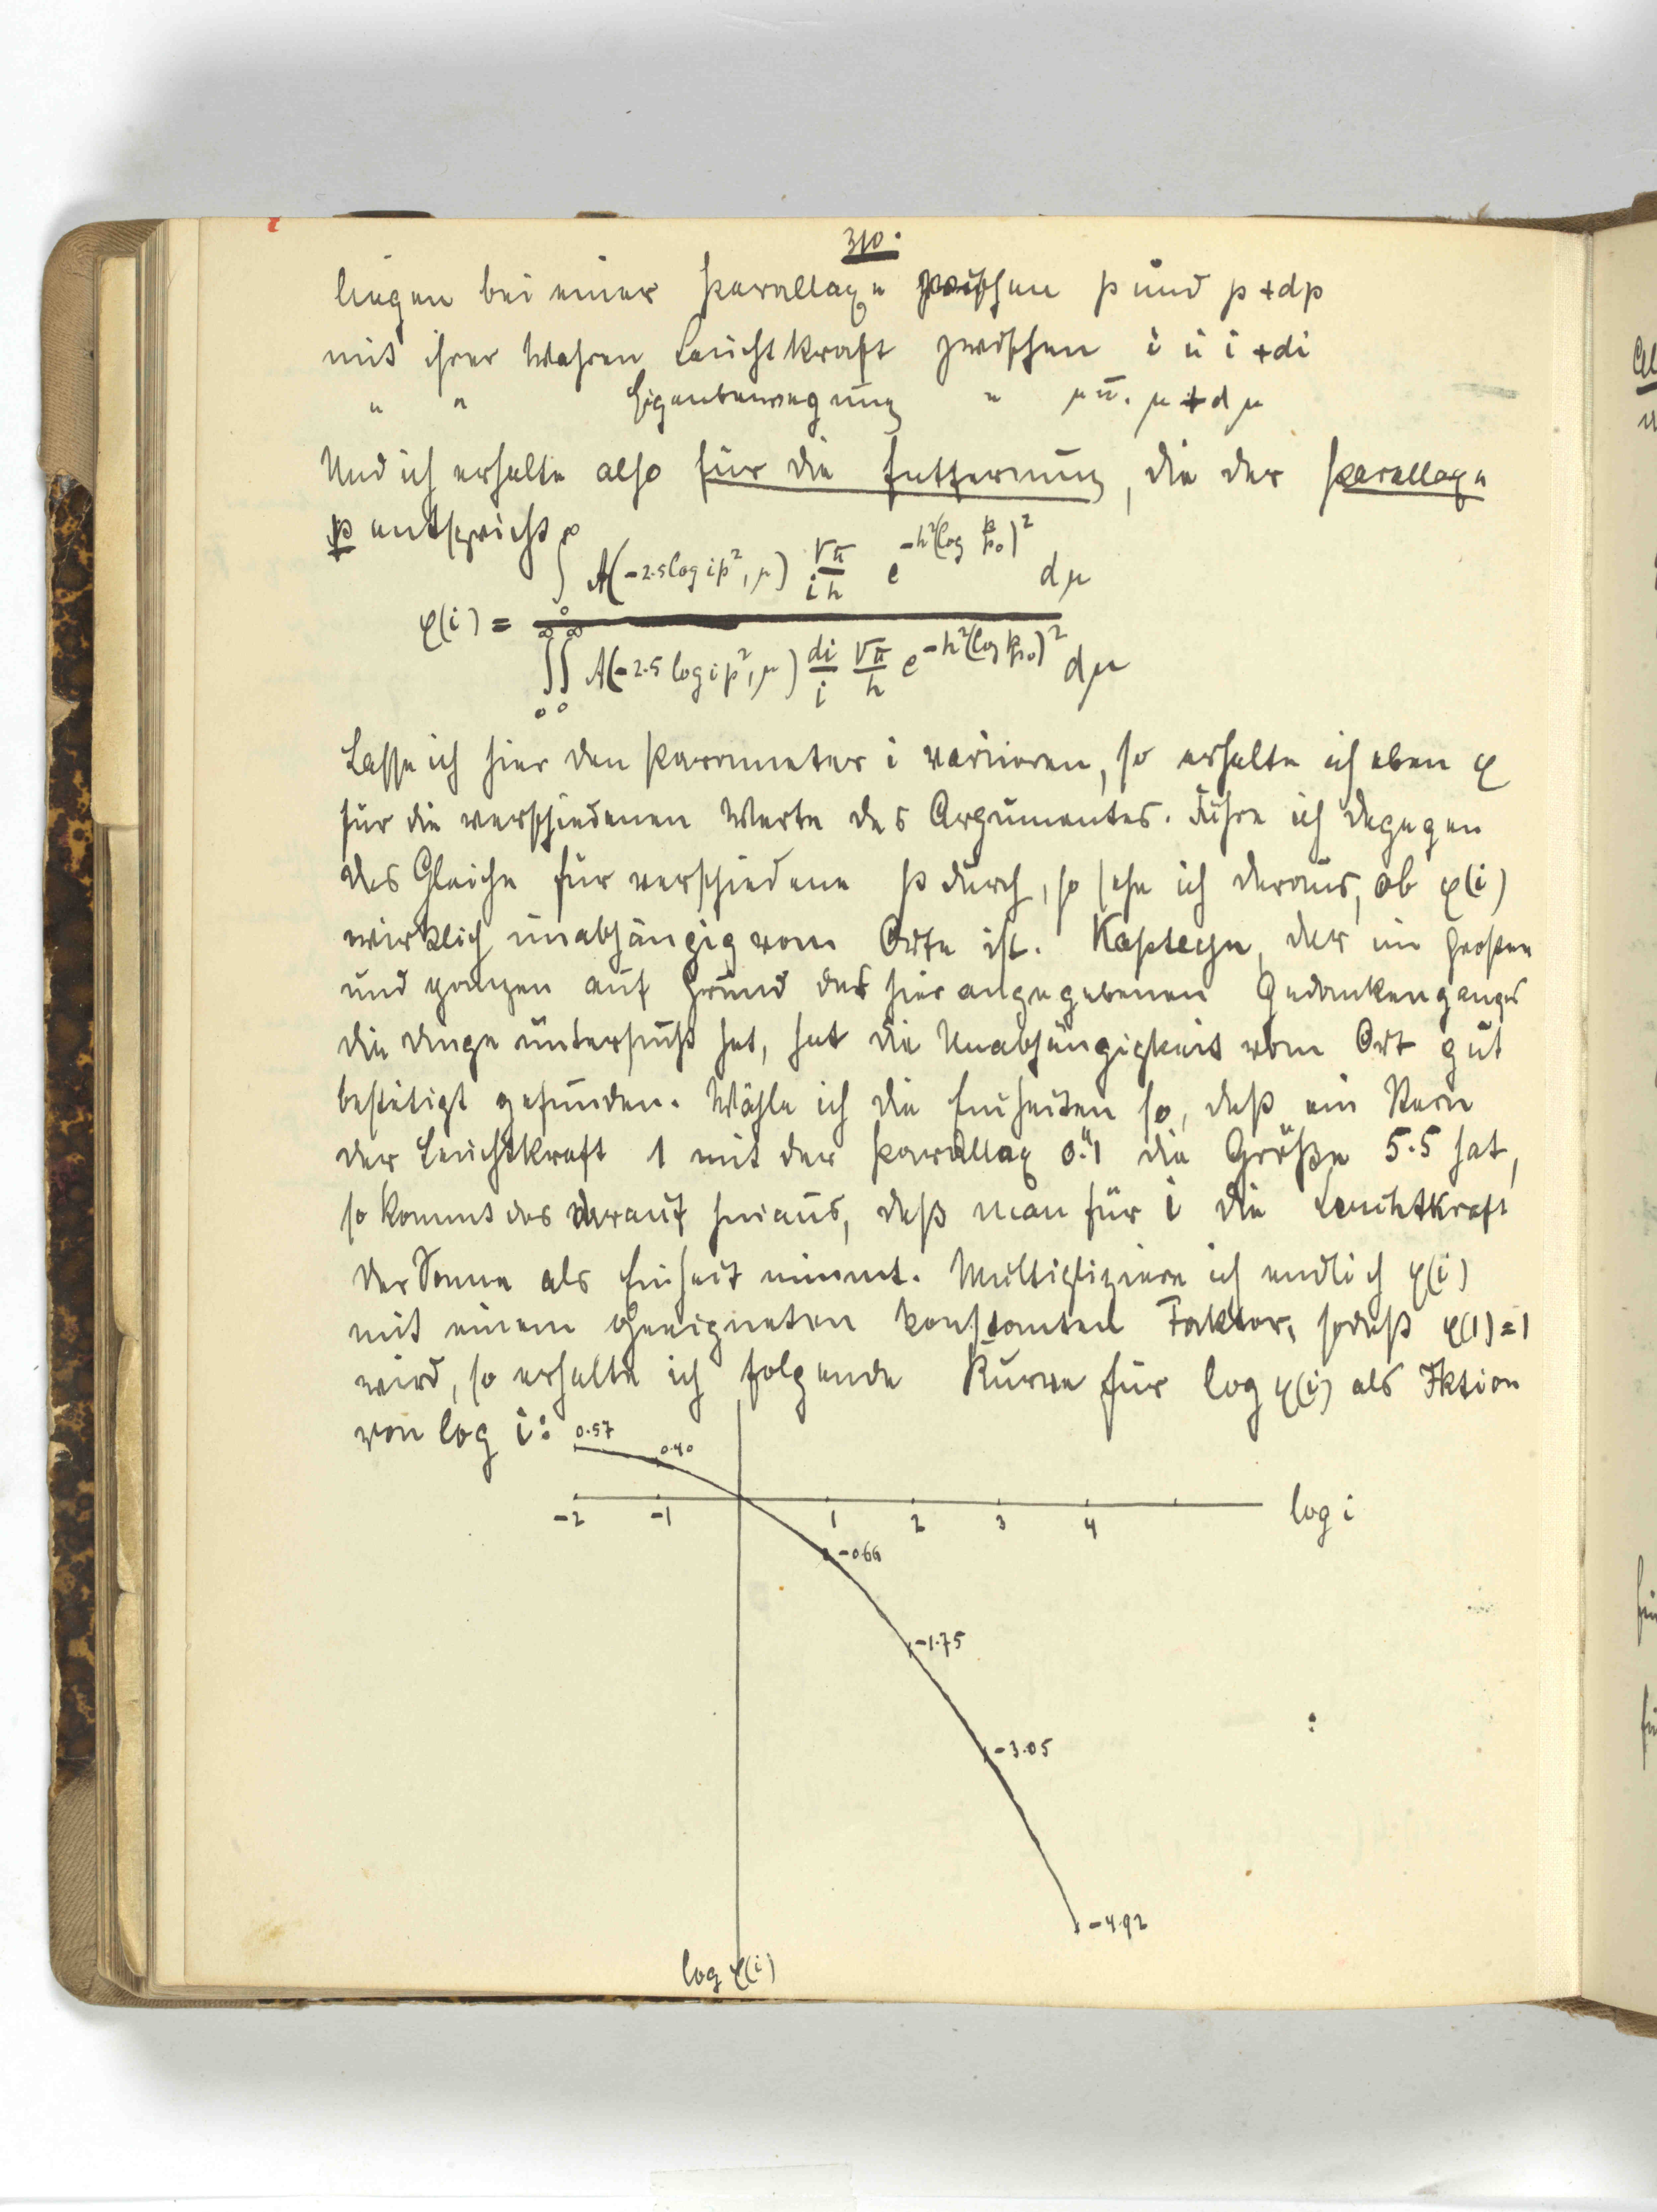 310.
liegen bei einer Parallaxe zwischen p und p+dp
mit ihrer wahren Leuchtkraft zwischen i u i+di
" " Eigenbewegung " μ u. μ+dμ
Und ich erhalte also für die Entfernung, die der Parallaxe
p entspricht
φ(i) = ∫₀^∞ A(-2.5 log ip², μ) √π/(ih) e^{-h²(log p/p₀)²} dμ
∫₀^∞∫₀^∞ A(-2.5 log ip², μ) di/i √π/h e^{-h²(log p/p₀)²} dμ
Lasse ich hier den Parameter i variieren, so erhalte ich eben φ
für die verschiedenen Werte des Argumentes. Führe ich dagegen
das Gleiche für verschiedene p durch, so sehe ich daraus, ob φ(i)
wirklich unabhängig vom Orte ist. Kapteyn, der im Großen
und ganzen auf Grund des hier angegebenen Gedankenganges
die Dinge untersucht hat, hat die Unabhängigkeit vom Ort gut
bestätigt gefunden. Wähle ich die Einheiten so, daß ein Stern
der Leuchtkraft 1 mit der Parallax 0."1 die Größe 5.5 hat,
so kommt das darauf hinaus, daß man für i die Leuchtkraft
der Sonne als Einheit nimmt. Multipliziere ich endlich φ(i)
mit einem geeigneten konstanten Faktor, sodaß φ(1)=1
wird, so erhalte ich folgende Kurve für log φ(i) als Fktion
von log i:
0.57
0.40
-2 -1 1 2 3 4
log i
-0.66
-1.75
-3.05
-4.92
log φ(i)